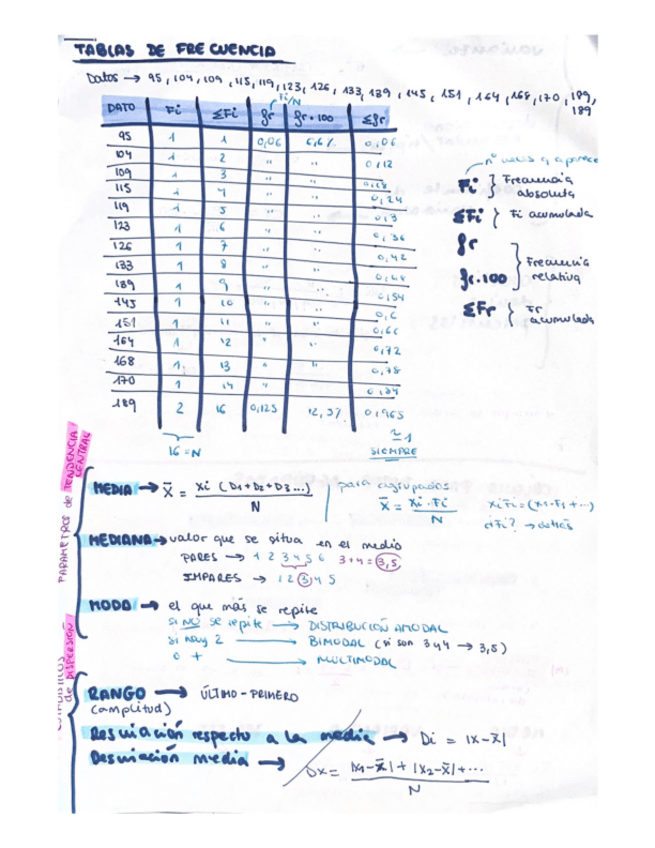 TABLAS DE FRECUENCIA
Datos → 95, 104, 109, 115, 119, 123, 126, 133, 139, 145, 151, 164, 168, 170, 189,
189
Fi/N
DATO Fi ΣFi fr fr·100 Σfr
95 1 1 0,06 6,6% 0,06
104 1 2 " " 0,12
109 1 3 " " 0,18
115 1 4 " " 0,24
119 1 5 " " 0,3
123 1 6 " " 0,36
126 1 7 " " 0,42
133 1 8 " " 0,48
139 1 9 " " 0,54
145 1 10 " " 0,6
151 1 11 " " 0,66
164 1 12 " " 0,72
168 1 13 " " 0,78
170 1 14 " 0,84
189 2 16 0,125 12,5% 0,965
16 = N
≃1
SIEMPRE
nº veces q aparece
Fi } Frecuencia
absoluta
ΣFi } Fi acumulada
fr
fr·100 } Frecuencia
relativa
ΣFr } Fr
acumulada
PARÁMETROS de TENDENCIA
CENTRAL
MEDIA → x̄ = xi (D1+D2+D3...) / N
para agrupados
x̄ = xi · Fi / N
xiFi = (x1·F1 + ...)
MEDIANA → valor que se situa en el medio
PARES → 1 2 3 4 5 6 3+4 = 3,5
IMPARES → 1 2 3 4 5
MODA → el que más se repite
si NO se repite → DISTRIBUCIÓN AMODAL
si hay 2 → BIMODAL (si son 3 y 4 → 3,5)
o + → MULTIMODAL
de DISPERSIÓN
RANGO → ÚLTIMO - PRIMERO
(amplitud)
Desviación respecto a la media → Di = |x-x̄|
Desviación media → Dx̄ = |x1-x̄| + |x2-x̄| + ... / N